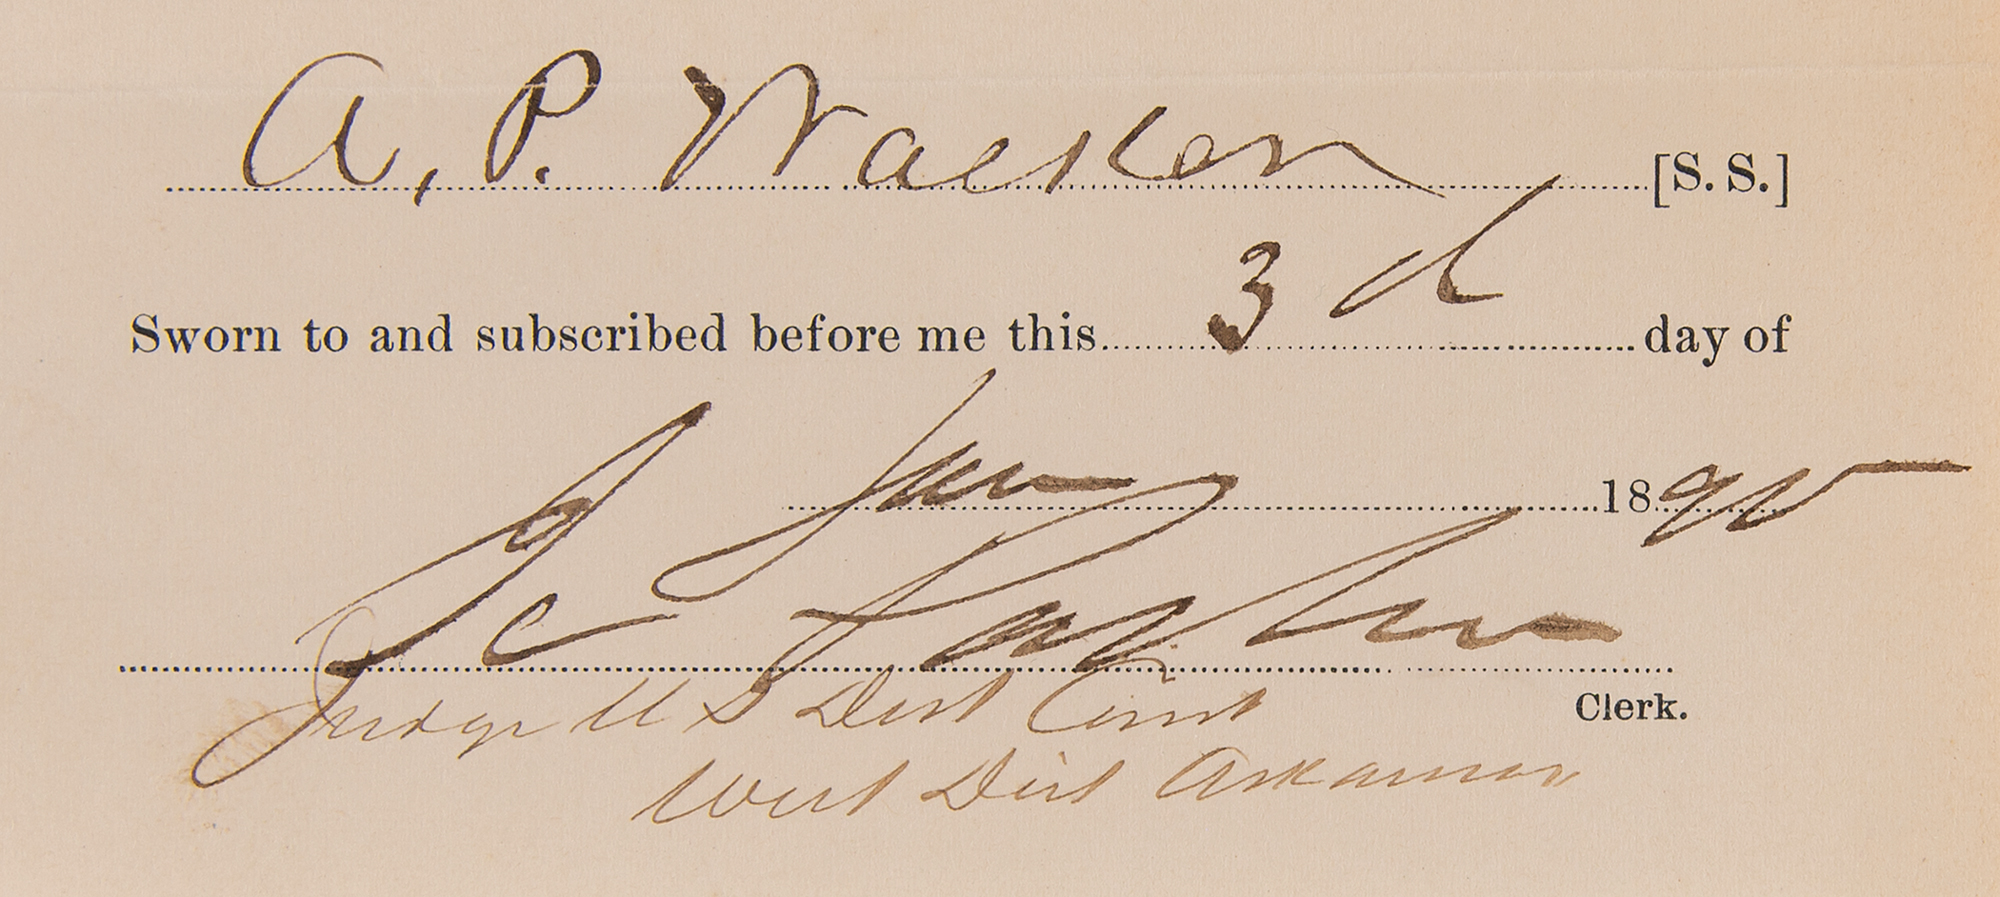 A, P. Waeken [S. S.]
Sworn to and subscribed before me this 3d day of
Jan 1895
I C Parker
Clerk.
Judge U S Dist Court
West Dist Arkansas